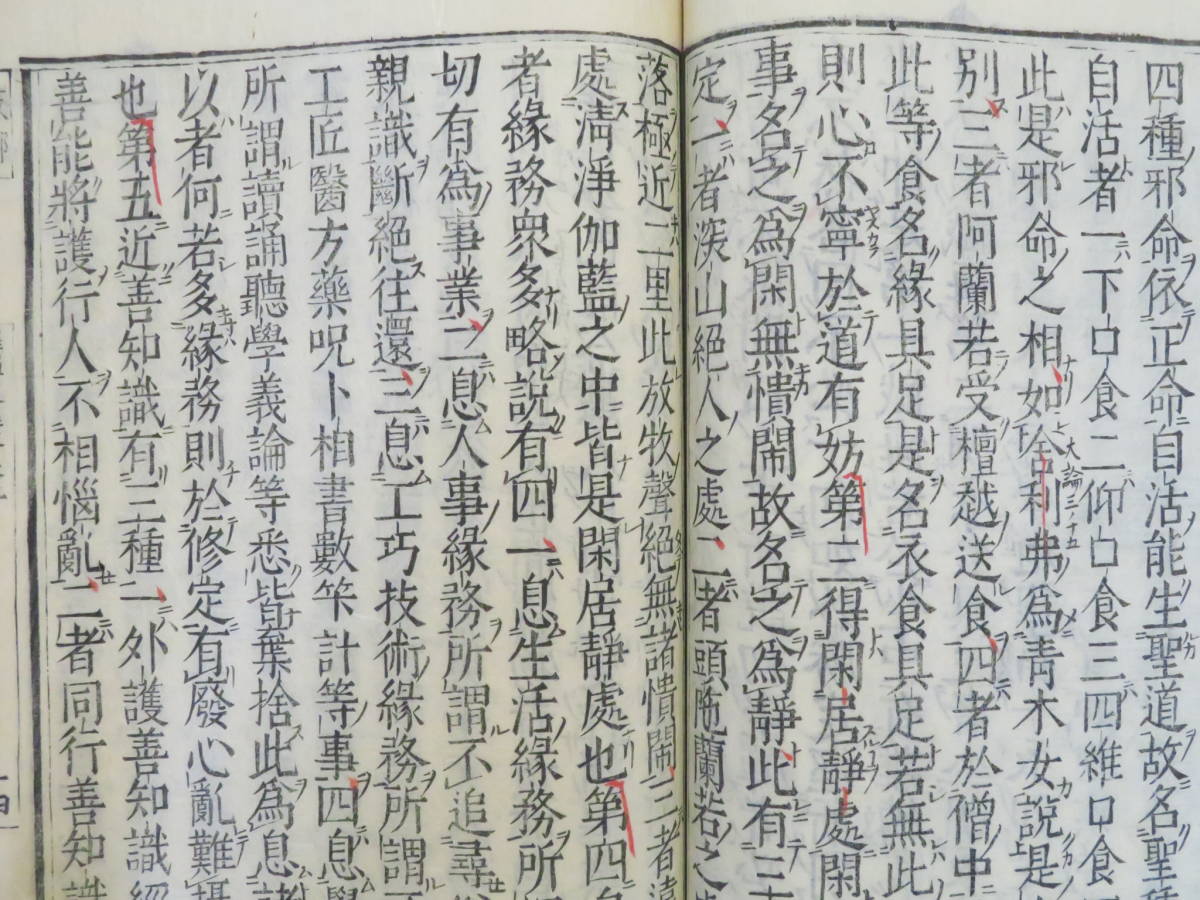 四種邪命依正命自活能生聖道故名聖種
自活者一下口食二仰口食三四維口食
此是邪命之相如舍利弗爲青木女說是
別三者阿蘭若受檀越送食四者於僧中
此等食名緣具足是名衣食具足若無此
則心不寧於道有妨第三得閑居靜處閑
事名之爲閑無憒鬧故名之爲靜此有三
定二者深山絕人之處二者頭陁蘭若之
落極近二里此放牧聲絕無諸憒鬧三者遠
處淸淨伽藍之中皆是閑居靜處也第四
者緣務衆多略說有四一息生活緣務所
切有爲事業二息人事緣務所謂不追尋
親識斷絕往還三息工巧技術緣務所謂
工匠醫方藥呪卜相書數筭計等事四息學
所謂讀誦聽學義論等悉皆棄捨此爲息諸
以者何若多緣務則於修定有廢心亂難攝
也第五近善知識有三種一外護善知識經
善能將護行人不相惱亂二者同行善知識